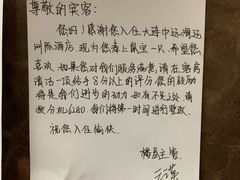 尊敬的宾客：
您好！感谢您入住大连中远海运
洲际酒店，现为您奉上鼠宝一只，希望您
喜欢。如果您对我们服务满意，请在客房
清洁一项给予8分以上的评分，您的鼓励
将是我们进步的动力，如有不足之处，请
拨分机6280，我们将第一时间进行整改。
祝您入住愉快
楼层主管